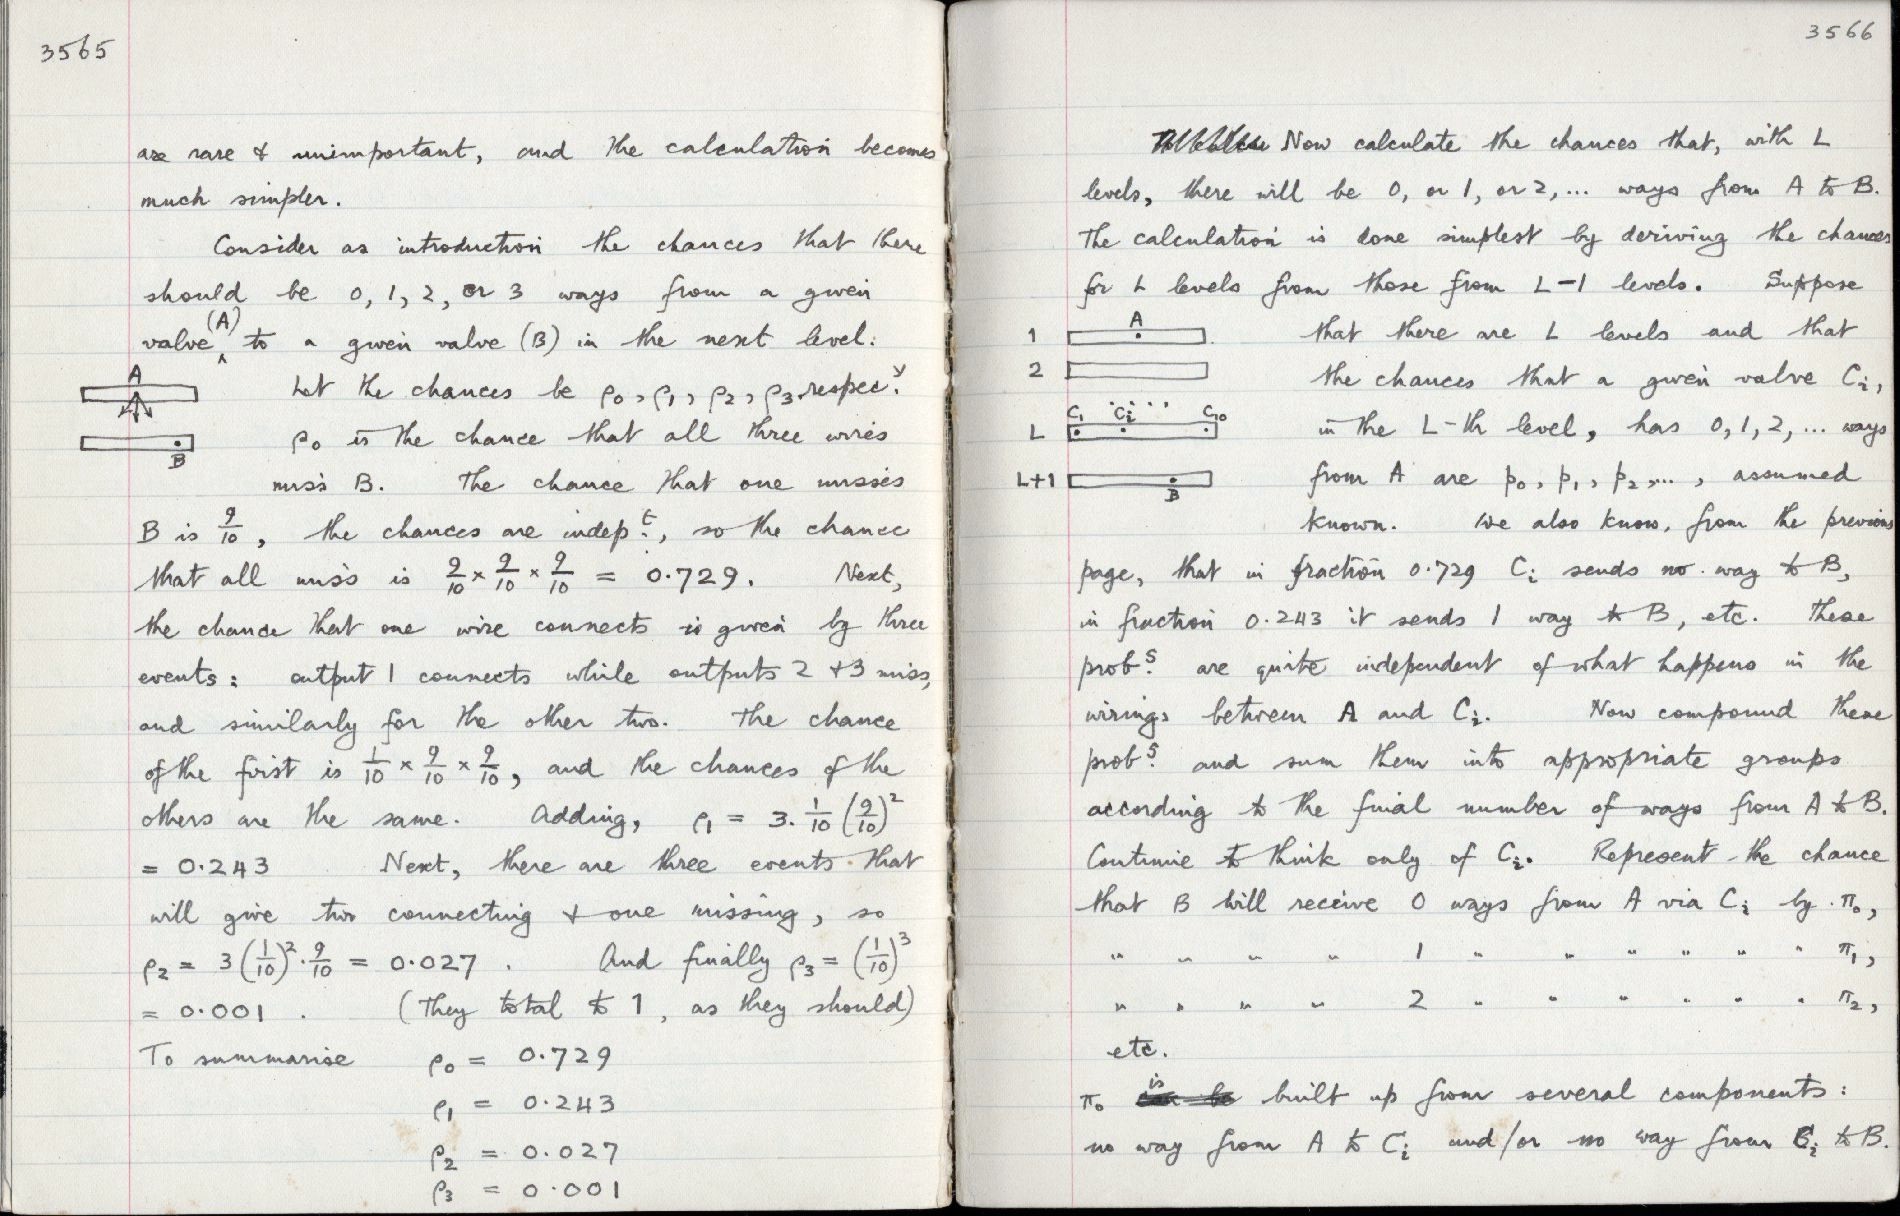 3565
are rare & unimportant, and the calculation becomes
much simpler.
Consider as introduction the chances that there
should be 0, 1, 2, or 3 ways from a given
valve (A) to a given valve (B) in the next level.
A
Let the chances be ρ0, ρ1, ρ2, ρ3 respec.y
ρ0 is the chance that all three wires
B
miss B. The chance that one misses
B is 9/10, the chances are indep.t, so the chance
that all miss is 9/10 × 9/10 × 9/10 = 0.729. Next,
the chance that one wire connects is given by three
events: output 1 connects while outputs 2 & 3 miss,
and similarly for the other two. The chance
of the first is 1/10 × 9/10 × 9/10, and the chances of the
others are the same. Adding, ρ1 = 3. 1/10 (9/10)²
= 0.243 Next, there are three events that
will give two connecting & one missing, so
ρ2 = 3(1/10)².9/10 = 0.027. And finally ρ3 = (1/10)³
= 0.001. (They total to 1, as they should)
To summarise ρ0 = 0.729
ρ1 = 0.243
ρ2 = 0.027
ρ3 = 0.001
3566
Now calculate the chances that, with L
levels, there will be 0, or 1, or 2, ... ways from A to B.
The calculation is done simplest by deriving the chances
for L levels from those from L-1 levels. Suppose
1 A that there are L levels and that
2 the chances that a given valve Ci,
C1 Ci ... C10
L in the L-th level, has 0, 1, 2, ... ways
L+1 from A are p0, p1, p2, ..., assumed
B
known. We also know, from the previous
page, that in fraction 0.729 Ci sends no way to B,
in fraction 0.243 it sends 1 way to B, etc. These
prob.s are quite independent of what happens in the
wirings between A and Ci. Now compound these
prob.s and sum them into appropriate groups
according to the final number of ways from A to B.
Continue to think only of Ci. Represent the chance
that B will receive 0 ways from A via Ci by π0,
" " " " 1 " " " " " " π1,
" " " " 2 " " " " " " π2,
etc.
π0 is built up from several components:
no way from A to Ci and/or no way from Ci to B.